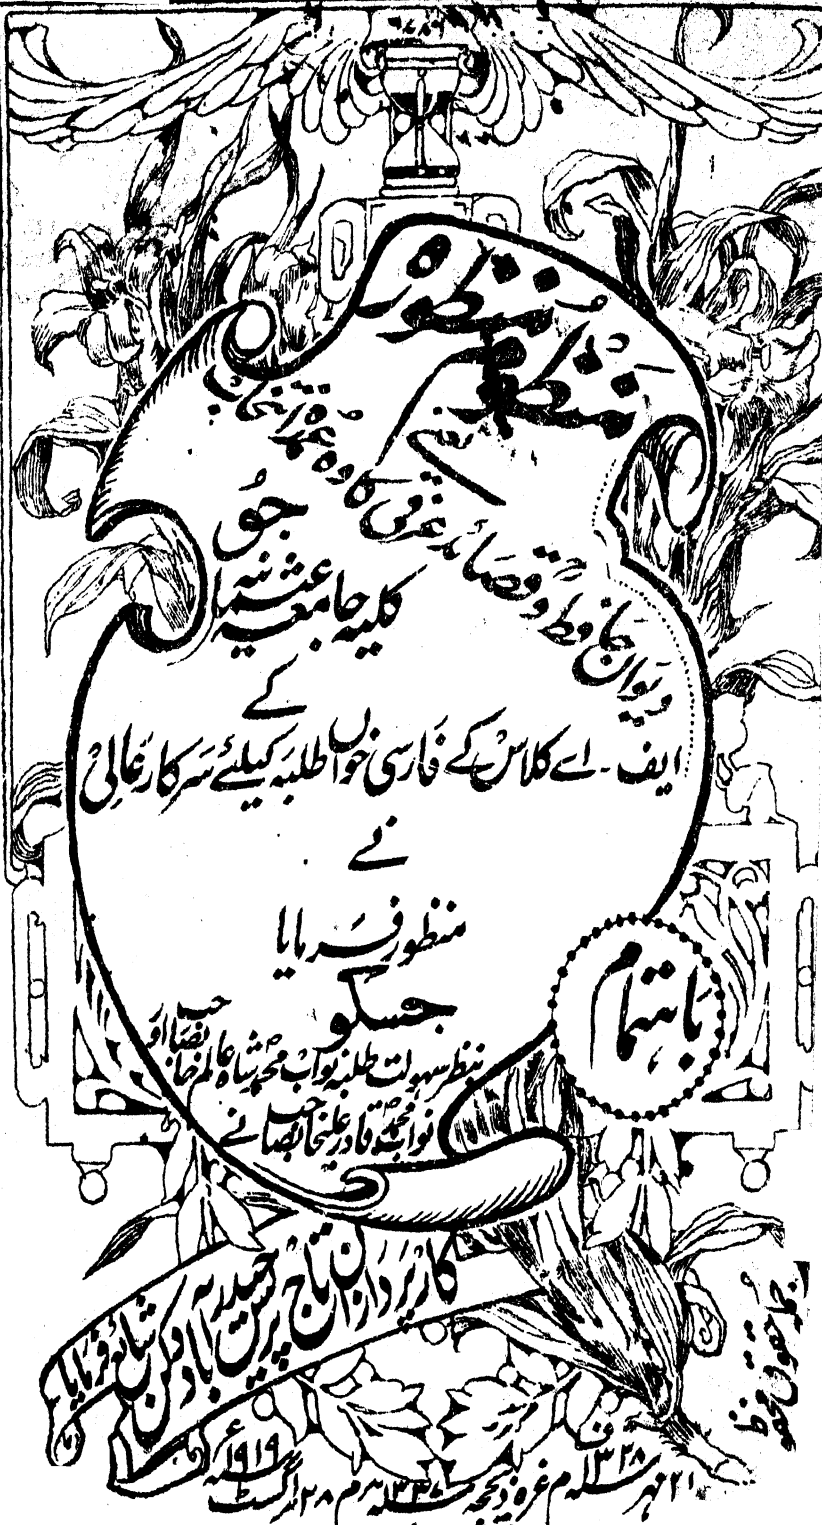 ۷۸۶
منظورہ
منظومہ
یعنی
دیوان حافظ و قصائد عرفی کا وہ عمدہ انتخاب
جو
کلیہ جامعہ عثمانیہ
کے
ایف۔ اے کلاس کے فارسی خواں طلبہ کیلئے سرکار عالی
نے
منظور فرمایا
جسکو
بنظر سہولت طلبہ نواب محمد شاہ عالم خانصاحب اور
نواب محمد قادر علیخانصاحب نے
باہتمام
کارپردازان تاج پریس حیدرآباد دکن شائع فرمایا
جملہ حقوق محفوظ
۲۱ مہر ۱۳۲۸ف م غرہ ذیحجہ ۱۳۳۷ھ م ۲۸ اگست ۱۹۱۹ء